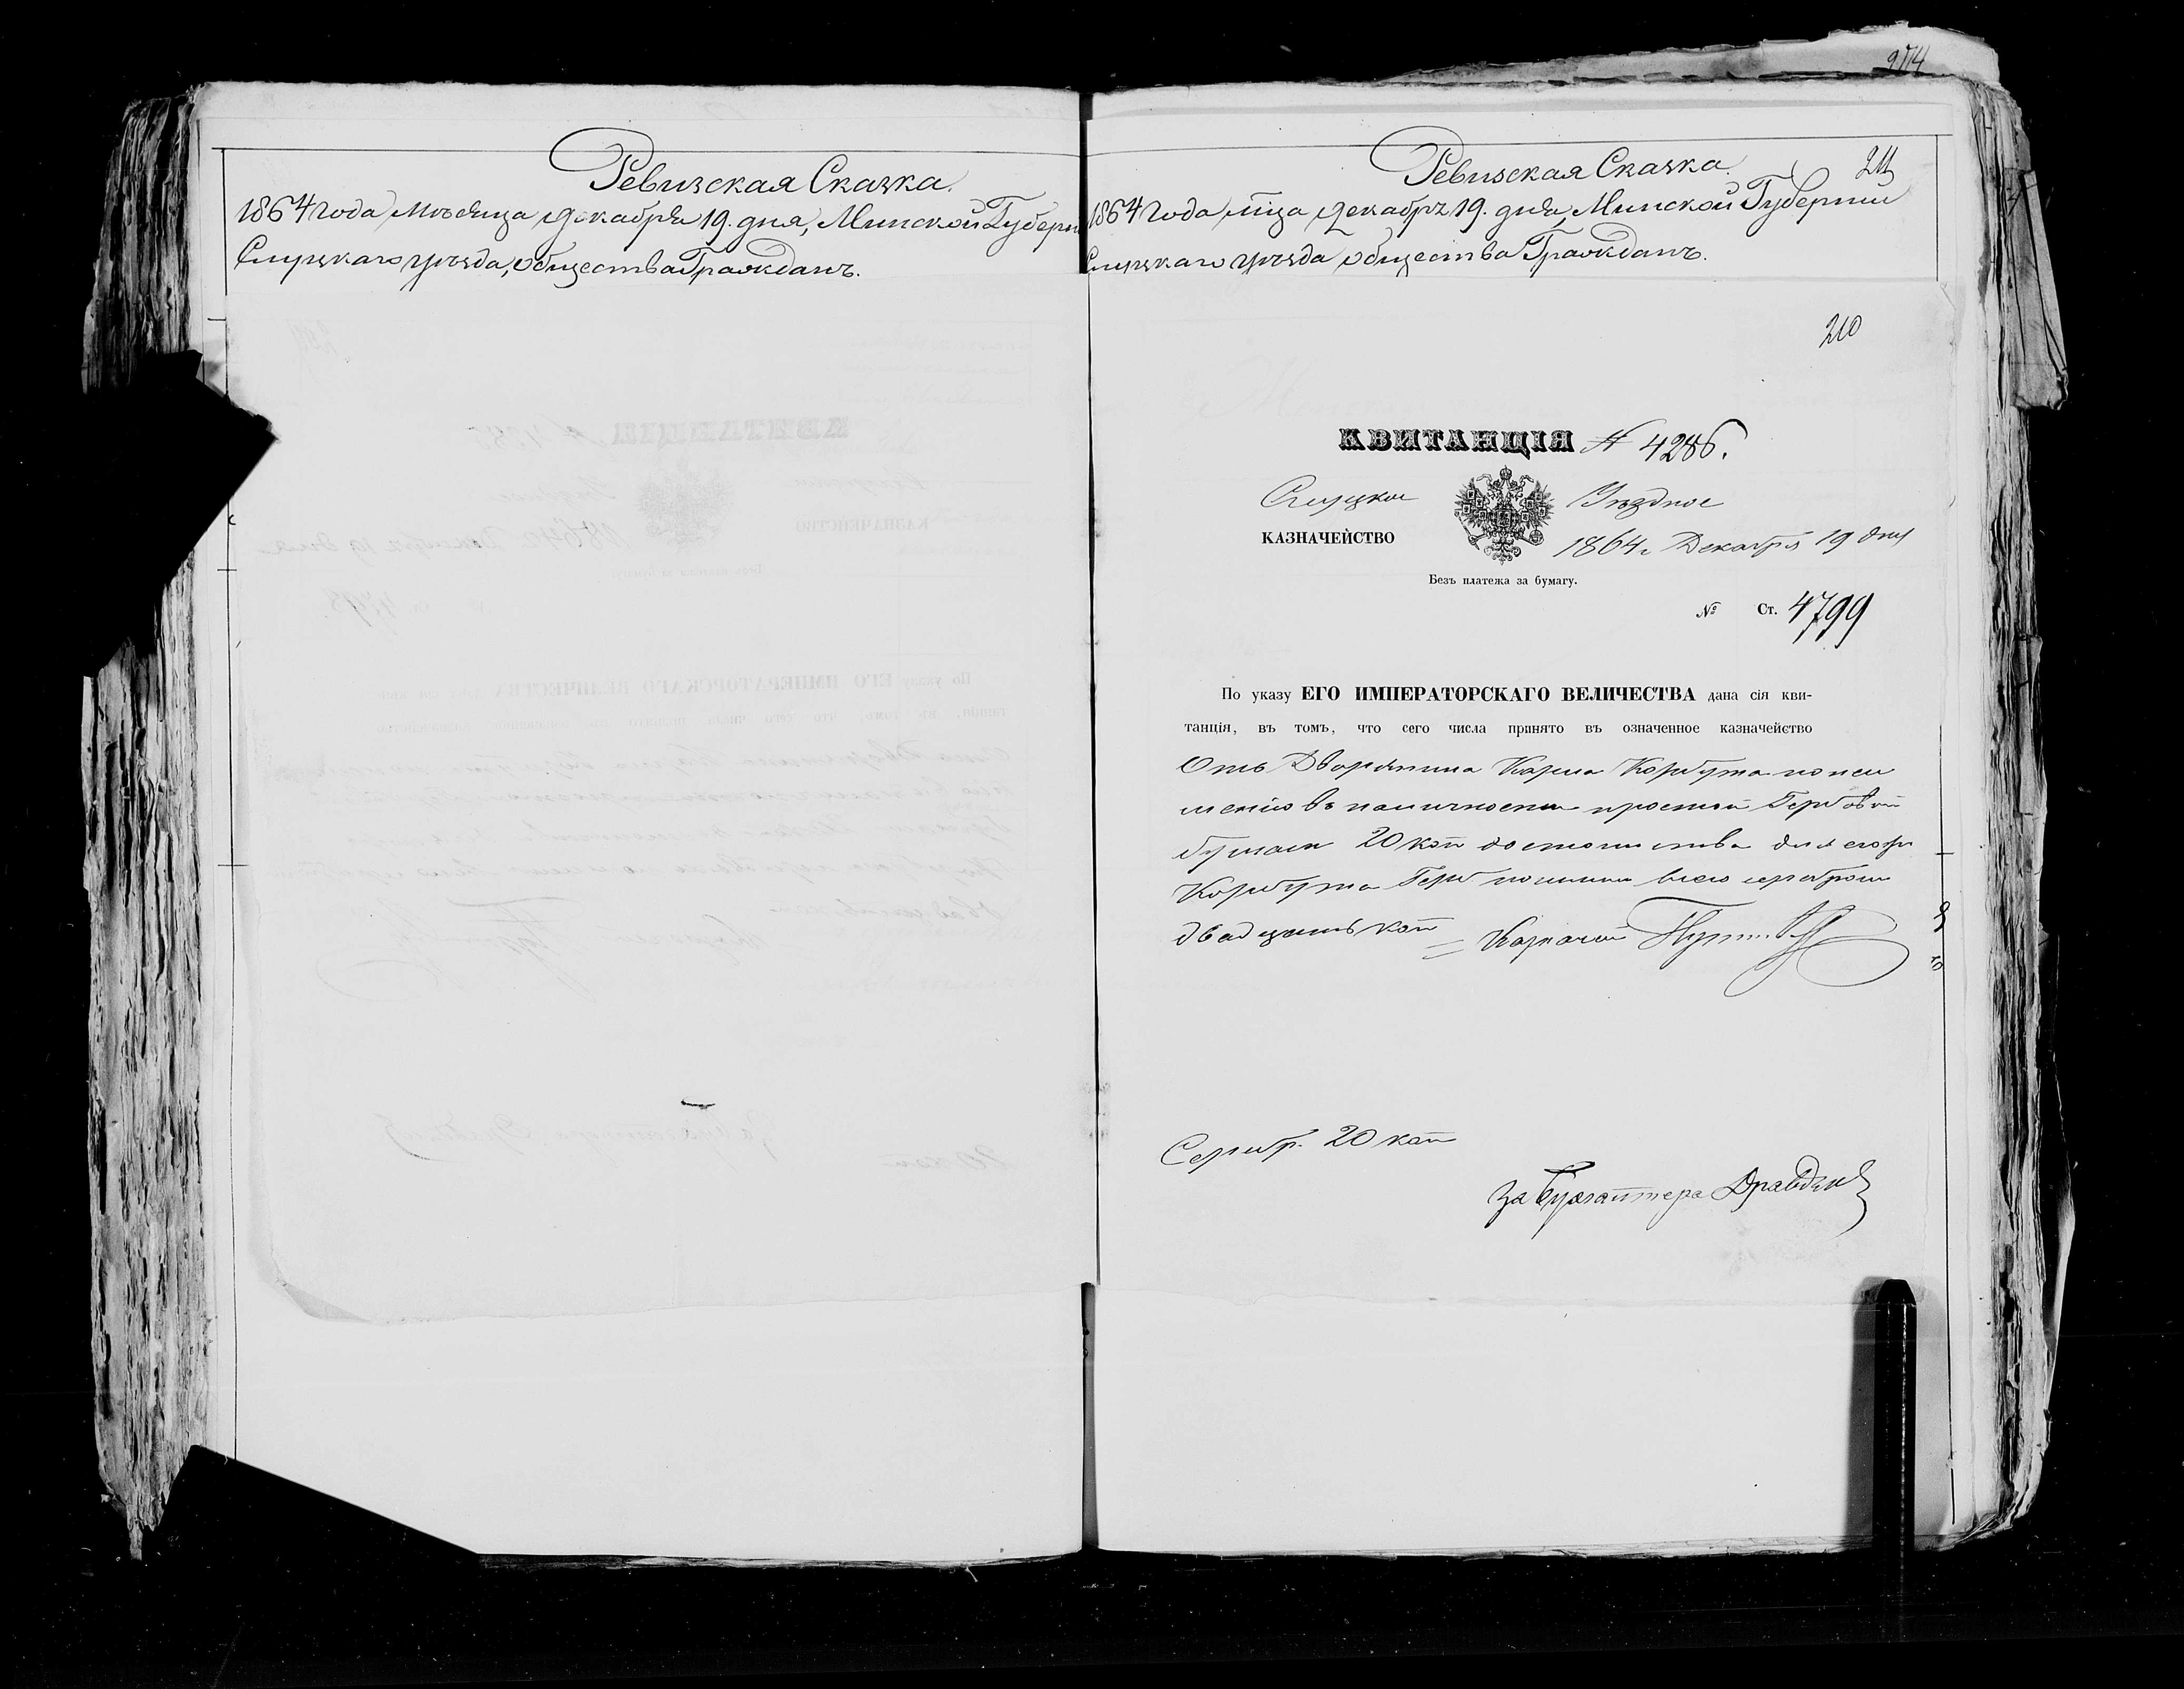 Ревизская Сказка.
1864 года Мѣсяца Декабря 19. дня, Минской Губерн
Слуцкаго уѣзда, общества Гражданъ.
274
Ревизская Сказка.
211
1864 года мца Декабря 19. дня, Минской Губерніи
Слуцкаго уѣзда общества Гражданъ.
210
КВИТАНЦІЯ № 4286.
Слуцкое Уѣздное
КАЗНАЧЕЙСТВО 1864 г. Декабря 19 дня
Безъ платежа за бумагу.
№ Ст. 4799
По указу ЕГО ИМПЕРАТОРСКАГО ВЕЛИЧЕСТВА дана сія кви-
танція, въ томъ, что сего числа принято въ означенное казначейство
Отъ Дворянина Корбута
въ простой Гербовой
бумаги 20 коп достоинства для его
Корбута Герб пошлин всего серебром
двадцать коп = Казначей
Серебр. 20 коп
За Бухгалтера